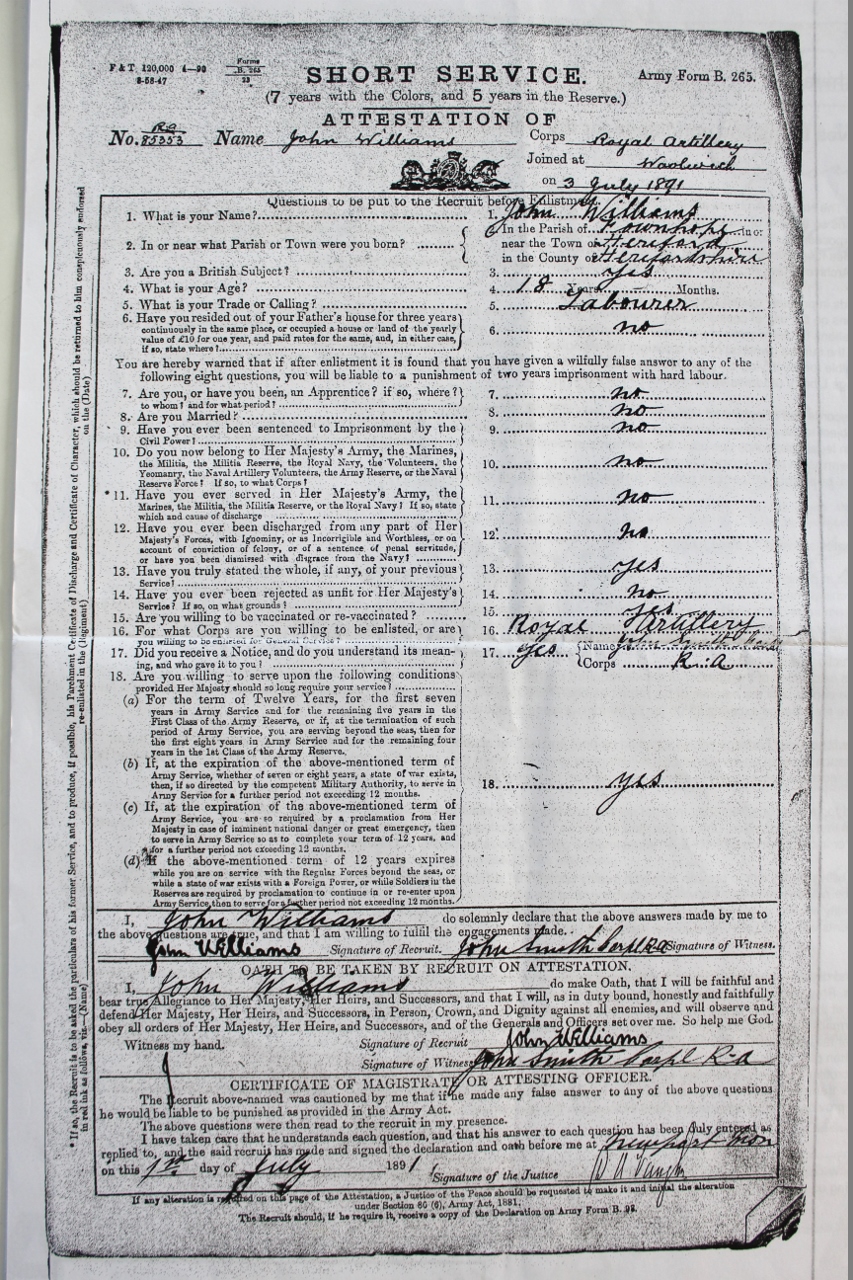 F & T 120,000 4—90
8-58-47
Forms
B. 265
23
SHORT SERVICE.
Army Form B. 265.
(7 years with the Colors, and 5 years in the Reserve.)
ATTESTATION OF
No. RA 85353 Name John Williams Corps Royal Artillery
Joined at Woolwich
on 3 July 1891
Questions to be put to the Recruit before Enlistment.
1. What is your Name?
1. John Williams
2. In or near what Parish or Town were you born?
In the Parish of in or
near the Town of Hereford
in the County of Herefordshire
3. Are you a British Subject?
3. Yes
4. What is your Age?
4. 18 Years Months.
5. What is your Trade or Calling?
5. Labourer
6. Have you resided out of your Father's house for three years
continuously in the same place, or occupied a house or land of the yearly
value of £10 for one year, and paid rates for the same, and, in either case,
if so, state where?
6. no
You are hereby warned that if after enlistment it is found that you have given a wilfully false answer to any of the
following eight questions, you will be liable to a punishment of two years imprisonment with hard labour.
7. Are you, or have you been, an Apprentice? if so, where?
to whom? and for what period?
7. no
8. Are you Married?
8. no
9. Have you ever been sentenced to Imprisonment by the
Civil Power?
9. no
10. Do you now belong to Her Majesty's Army, the Marines,
the Militia, the Militia Reserve, the Royal Navy, the Volunteers, the
Yeomanry, the Naval Artillery Volunteers, the Army Reserve, or the Naval
Reserve Force? If so, to what Corps?
10. no
* 11. Have you ever served in Her Majesty's Army, the
Marines, the Militia, the Militia Reserve, or the Royal Navy? If so, state
which and cause of discharge
11. no
12. Have you ever been discharged from any part of Her
Majesty's Forces, with Ignominy, or as Incorrigible and Worthless, or on
account of conviction of felony, or of a sentence of penal servitude,
or have you been dismissed with disgrace from the Navy?
12. no
13. Have you truly stated the whole, if any, of your previous
Service?
13. yes
14. Have you ever been rejected as unfit for Her Majesty's
Service? If so, on what grounds?
14. no
15. Are you willing to be vaccinated or re-vaccinated?
15. yes
16. For what Corps are you willing to be enlisted, or are
you willing to be enlisted for General Service?
16. Royal Artillery
17. Did you receive a Notice, and do you understand its mean-
ing, and who gave it to you?
17. Yes Name John Smith
Corps R.A
18. Are you willing to serve upon the following conditions
provided Her Majesty should so long require your service?
(a) For the term of Twelve Years, for the first seven
years in Army Service and for the remaining five years in the
First Class of the Army Reserve, or if, at the termination of such
period of Army Service, you are serving beyond the seas, then for
the first eight years in Army Service and for the remaining four
years in the 1st Class of the Army Reserve.
(b) If, at the expiration of the above-mentioned term of
Army Service, whether of seven or eight years, a state of war exists,
then, if so directed by the competent Military Authority, to serve in
Army Service for a further period not exceeding 12 months.
18. yes
(c) If, at the expiration of the above-mentioned term of
Army Service, you are so required by a proclamation from Her
Majesty in case of imminent national danger or great emergency, then
to serve in Army Service so as to complete your term of 12 years, and
for a further period not exceeding 12 months.
(d) If the above-mentioned term of 12 years expires
while you are on service with the Regular Forces beyond the seas, or
while a state of war exists with a Foreign Power, or while Soldiers in the
Reserves are required by proclamation to continue in or re-enter upon
Army Service, then to serve for a further period not exceeding 12 months.
I, John Williams do solemnly declare that the above answers made by me to
the above questions are true, and that I am willing to fulfil the engagements made.
John Williams Signature of Recruit. John Smith Corpl RA Signature of Witness.
OATH TO BE TAKEN BY RECRUIT ON ATTESTATION.
I, John Williams do make Oath, that I will be faithful and
bear true Allegiance to Her Majesty, Her Heirs, and Successors, and that I will, as in duty bound, honestly and faithfully
defend Her Majesty, Her Heirs, and Successors, in Person, Crown, and Dignity against all enemies, and will observe and
obey all orders of Her Majesty, Her Heirs, and Successors, and of the Generals and Officers set over me. So help me God.
Witness my hand. Signature of Recruit John Williams
Signature of Witness John Smith Corpl R.A
CERTIFICATE OF MAGISTRATE OR ATTESTING OFFICER.
The Recruit above-named was cautioned by me that if he made any false answer to any of the above questions
he would be liable to be punished as provided in the Army Act.
The above questions were then read to the recruit in my presence.
I have taken care that he understands each question, and that his answer to each question has been duly entered as
replied to, and the said recruit has made and signed the declaration and oath before me at Newport Mon
on this 1st day of July 1891 Signature of the Justice
If any alteration is required on this page of the Attestation, a Justice of the Peace should be requested to make it and initial the alteration
under Section 80 (6), Army Act, 1881.
The Recruit should, if he require it, receive a copy of the Declaration on Army Form B. 98.
* If so, the Recruit is to be asked the particulars of his former Service, and to produce, if possible, his Parchment Certificate of Discharge and Certificate of Character, which should be returned to him conspicuously endorsed
in red ink as follows, viz.—(Name) re-enlisted in the (Regiment) on the (Date)